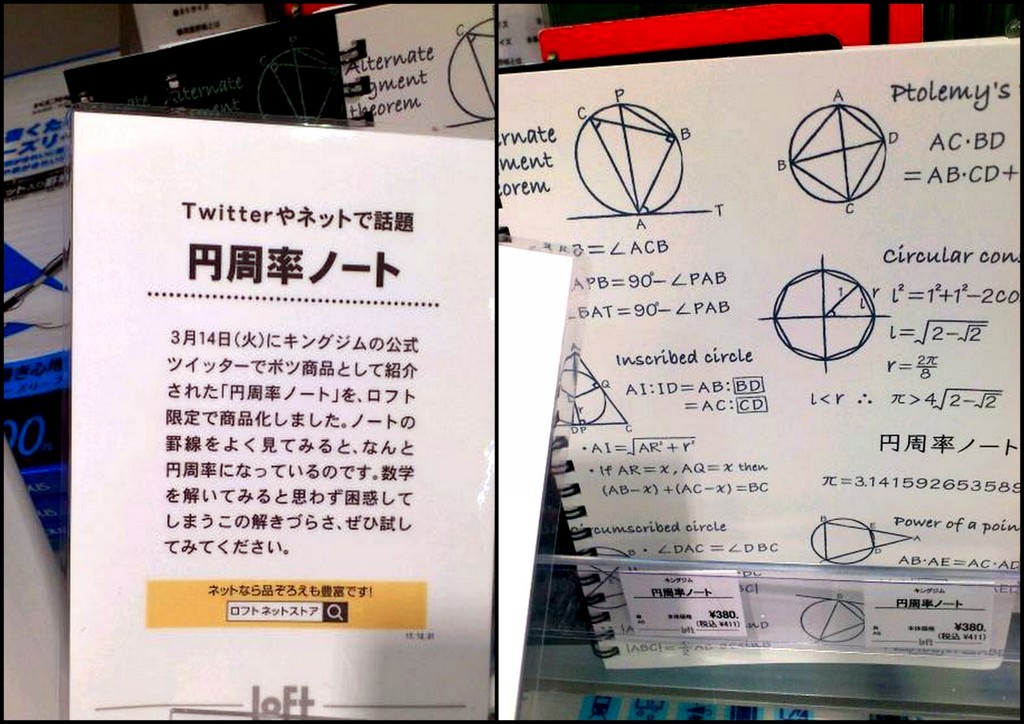 Alternate
Alternate
segment
theorem
C
P
Twitterやネットで話題
円周率ノート
3月14日(火)にキングジムの公式
ツイッターでボツ商品として紹介
された「円周率ノート」を、ロフト
限定で商品化しました。ノートの
罫線をよく見てみると、なんと
円周率になっているのです。数学
を解いてみると思わず困惑して
しまうこの解きづらさ、ぜひ試し
てみてください。
ネットなら品ぞろえも豊富です!
ロフト ネットストア
17.12.21
loft
rnate
ment
orem
C P B A T
Ptolemy's
A B C D
AC·BD
= AB·CD+
=∠ACB
APB=90°-∠PAB
BAT=90°-∠PAB
Circular con
1 r l
l²=1²+1²-2co
l=√2-√2
r=2π/8
l<r ∴ π>4√2-√2
Inscribed circle
AI:ID=AB:BD
=AC:CD
・AI=√AR²+r²
・If AR=x, AQ=x then
(AB-x)+(AC-x)=BC
円周率ノート
π=3.141592653589
ircumscribed circle
・∠DAC=∠DBC
Power of a poin
B E D A
AB·AE=AC·AD
キングジム
円周率ノート
本体価格 ¥380.
(税込 ¥411)
loft
キングジム
円周率ノート
本体価格 ¥380.
(税込 ¥411)
loft